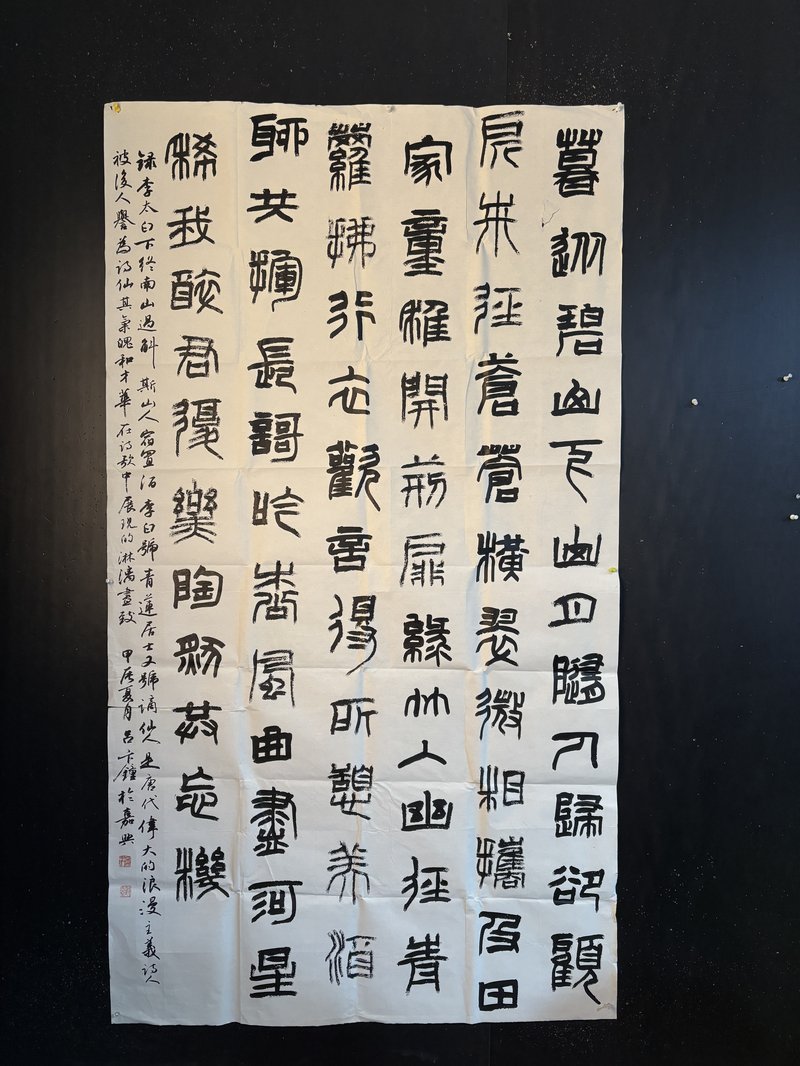 暮從碧山下山月隨人歸卻顧
所來徑蒼蒼橫翠微相攜及田
家童稚開荊扉綠竹入幽徑青
蘿拂行衣歡言得所憩美酒
聊共揮長歌吟松風曲盡河星
稀我醉君復樂陶然共忘機
録李太白下終南山過斛斯山人宿置酒李白號青蓮居士又號謫仙人是唐代偉大的浪漫主義詩人
被後人譽為詩仙其氣魄和才華在詩歌中展現的淋漓盡致 甲辰夏月吕鐘於嘉興